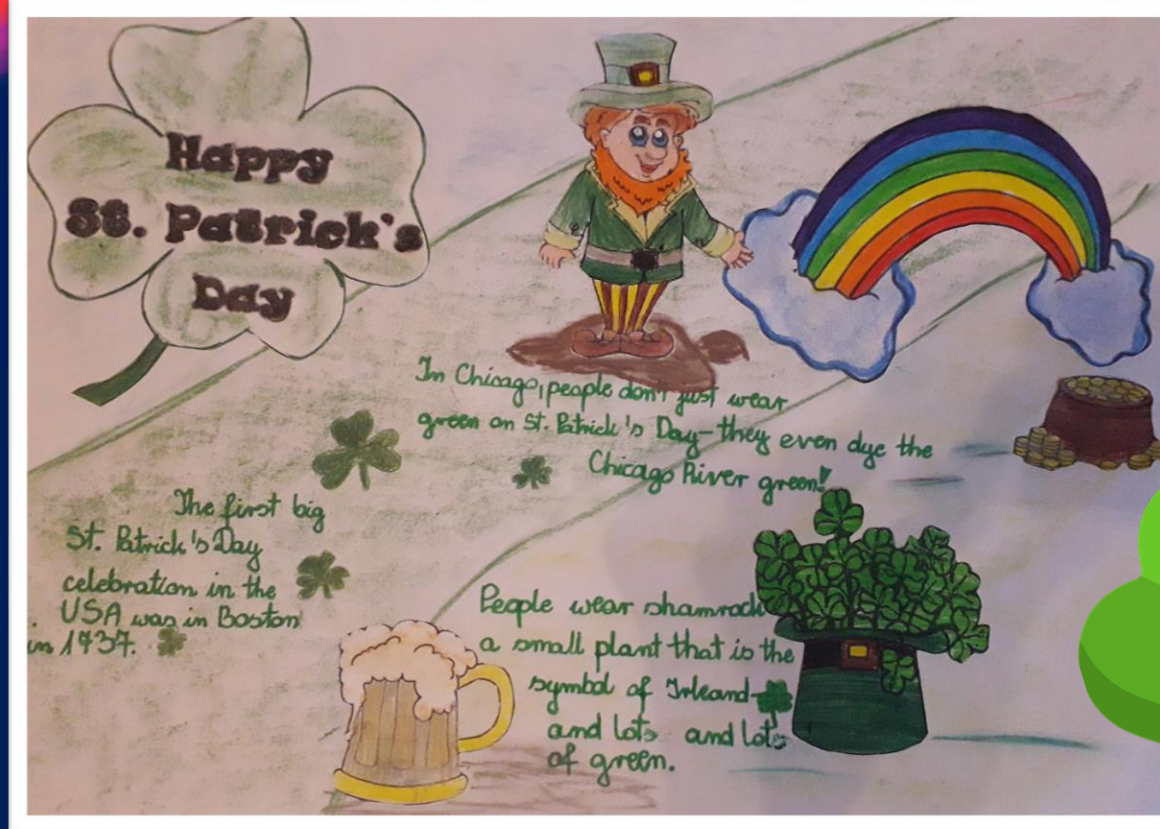 Happy
St. Patrick's
Day
In Chicago, people don't just wear
green on St. Patrick's Day-they even dye the
Chicago River green!
The first big
St. Patrick's Day
celebration in the
USA was in Boston
in 1737.
People wear shamrock
a small plant that is the
symbol of Irleand
and lots and lots
of green.